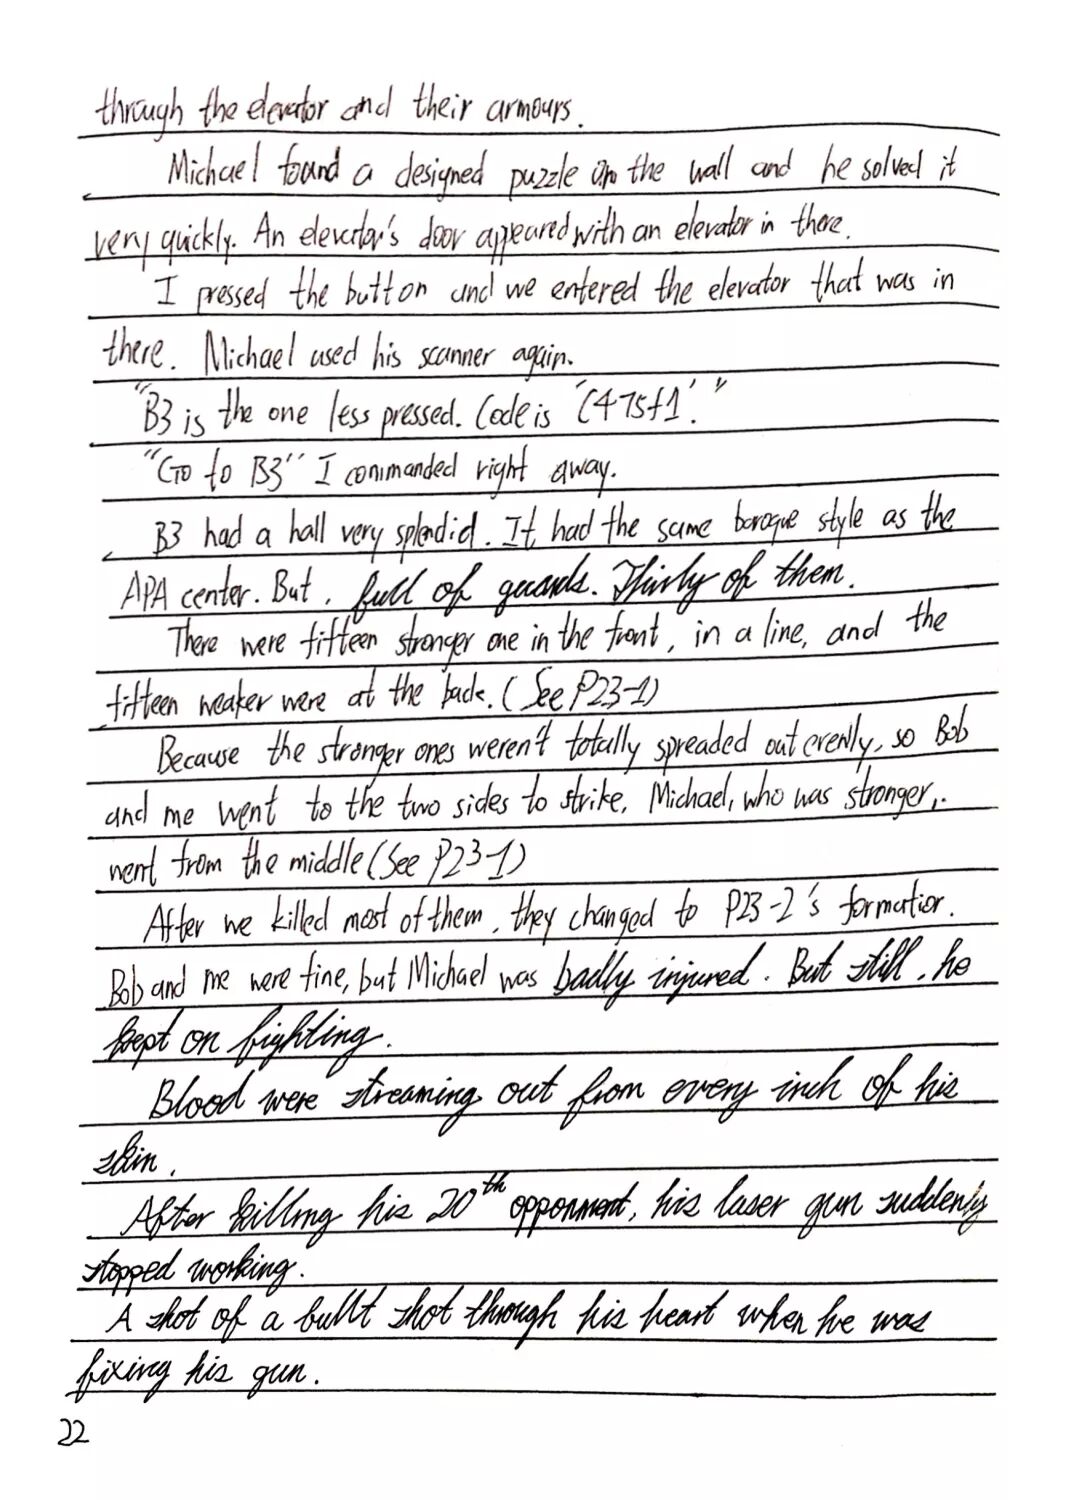 through the elevator and their armours.
Michael found a designed puzzle on the wall and he solved it
very quickly. An elevator's door appeared with an elevator in there.
I pressed the button and we entered the elevator that was in
there. Michael used his scanner again.
"B3 is the one less pressed. Code is 'C475f1'."
"Go to B3" I commanded right away.
B3 had a hall very splendid. It had the same baroque style as the
APA center. But, full of guards. Thirty of them.
There were fifteen stronger one in the front, in a line, and the
fifteen weaker were at the back. (See P23-1)
Because the stronger ones weren't totally spreaded out evenly, so Bob
and me went to the two sides to strike, Michael, who was stronger,
went from the middle (See P23-1)
After we killed most of them, they changed to P23-2's formation.
Bob and me were fine, but Michael was badly injured. But still, he
kept on fighting.
Blood were streaming out from every inch of his
skin.
After killing his 20th opponment, his laser gun suddenly
stopped working.
A shot of a bullt shot through his heart when he was
fixing his gun.
22